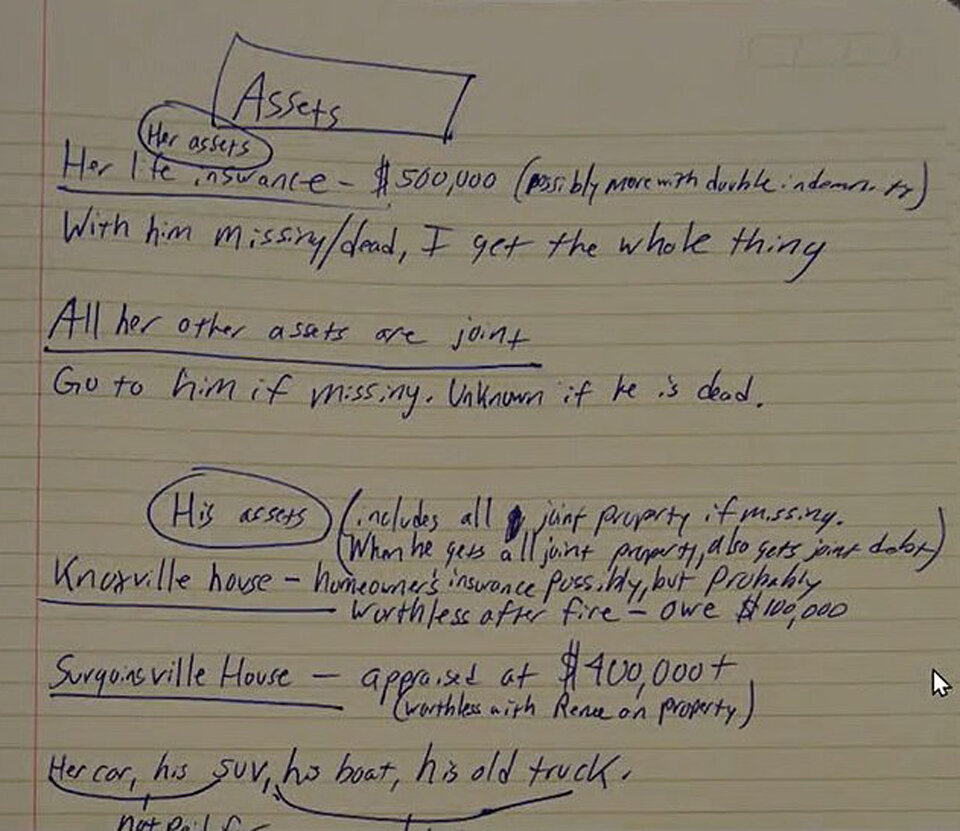 Assets
Her assets
Her life insurance - $500,000 (possibly more with double indemnity)
With him missing/dead, I get the whole thing
All her other assets are joint
Go to him if missing. Unknown if he is dead.
His assets (includes all joint property if missing.
(When he gets all joint property, also gets joint debt)
Knoxville house - homeowner's insurance possibly, but probably
worthless after fire - owe $100,000
Surgoinsville House - appraised at $400,000+
(worthless with Renee on property)
Her car, his SUV, his boat, his old truck.
not paid for